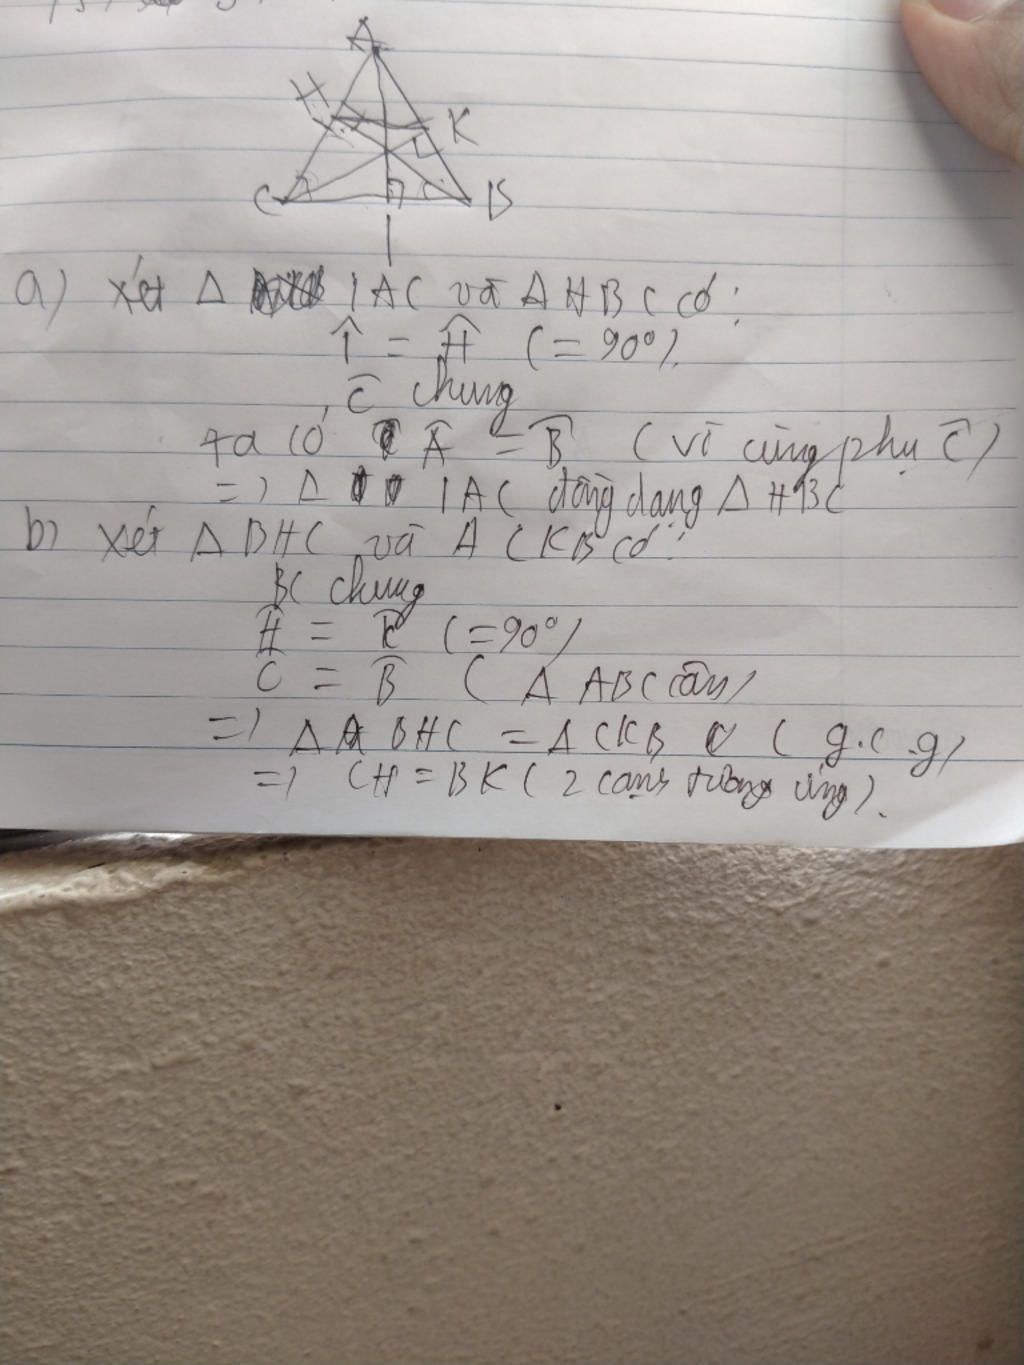 A
H
K
C
B
I
a) xét Δ IAC và Δ HBC có:
Î = Ĥ (= 90°).
Ĉ chung
ta có Â = B̂ (vì cùng phụ Ĉ)
=> Δ IAC đồng dạng Δ HBC
b) xét Δ BHC và Δ CKB có:
BC chung
Ĥ = K̂ (= 90°)
Ĉ = B̂ (Δ ABC cân)
=> Δ BHC = Δ CKB (g.c.g)
=> CH = BK (2 cạnh tương ứng).